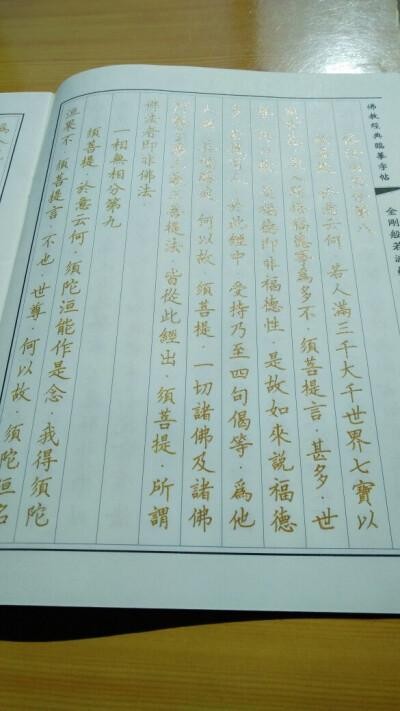 佛教經典臨摹字帖
金剛般若波
依法出生分第八
須菩提·於意云何·若人滿三千大千世界七寶以
用布施·是人所得福德寧為多不·須菩提言·甚多·世
尊·何以故·是福德即非福德性·是故如來說福德
多·若復有人·於此經中·受持乃至四句偈等·為他
人說·其福勝彼·何以故·須菩提·一切諸佛及諸佛
阿耨多羅三藐三菩提法·皆從此經出·須菩提·所謂
佛法者即非佛法·
一相無相分第九
須菩提·於意云何·須陀洹能作是念·我得須陀
洹果不·須菩提言·不也·世尊·何以故·須陀洹名